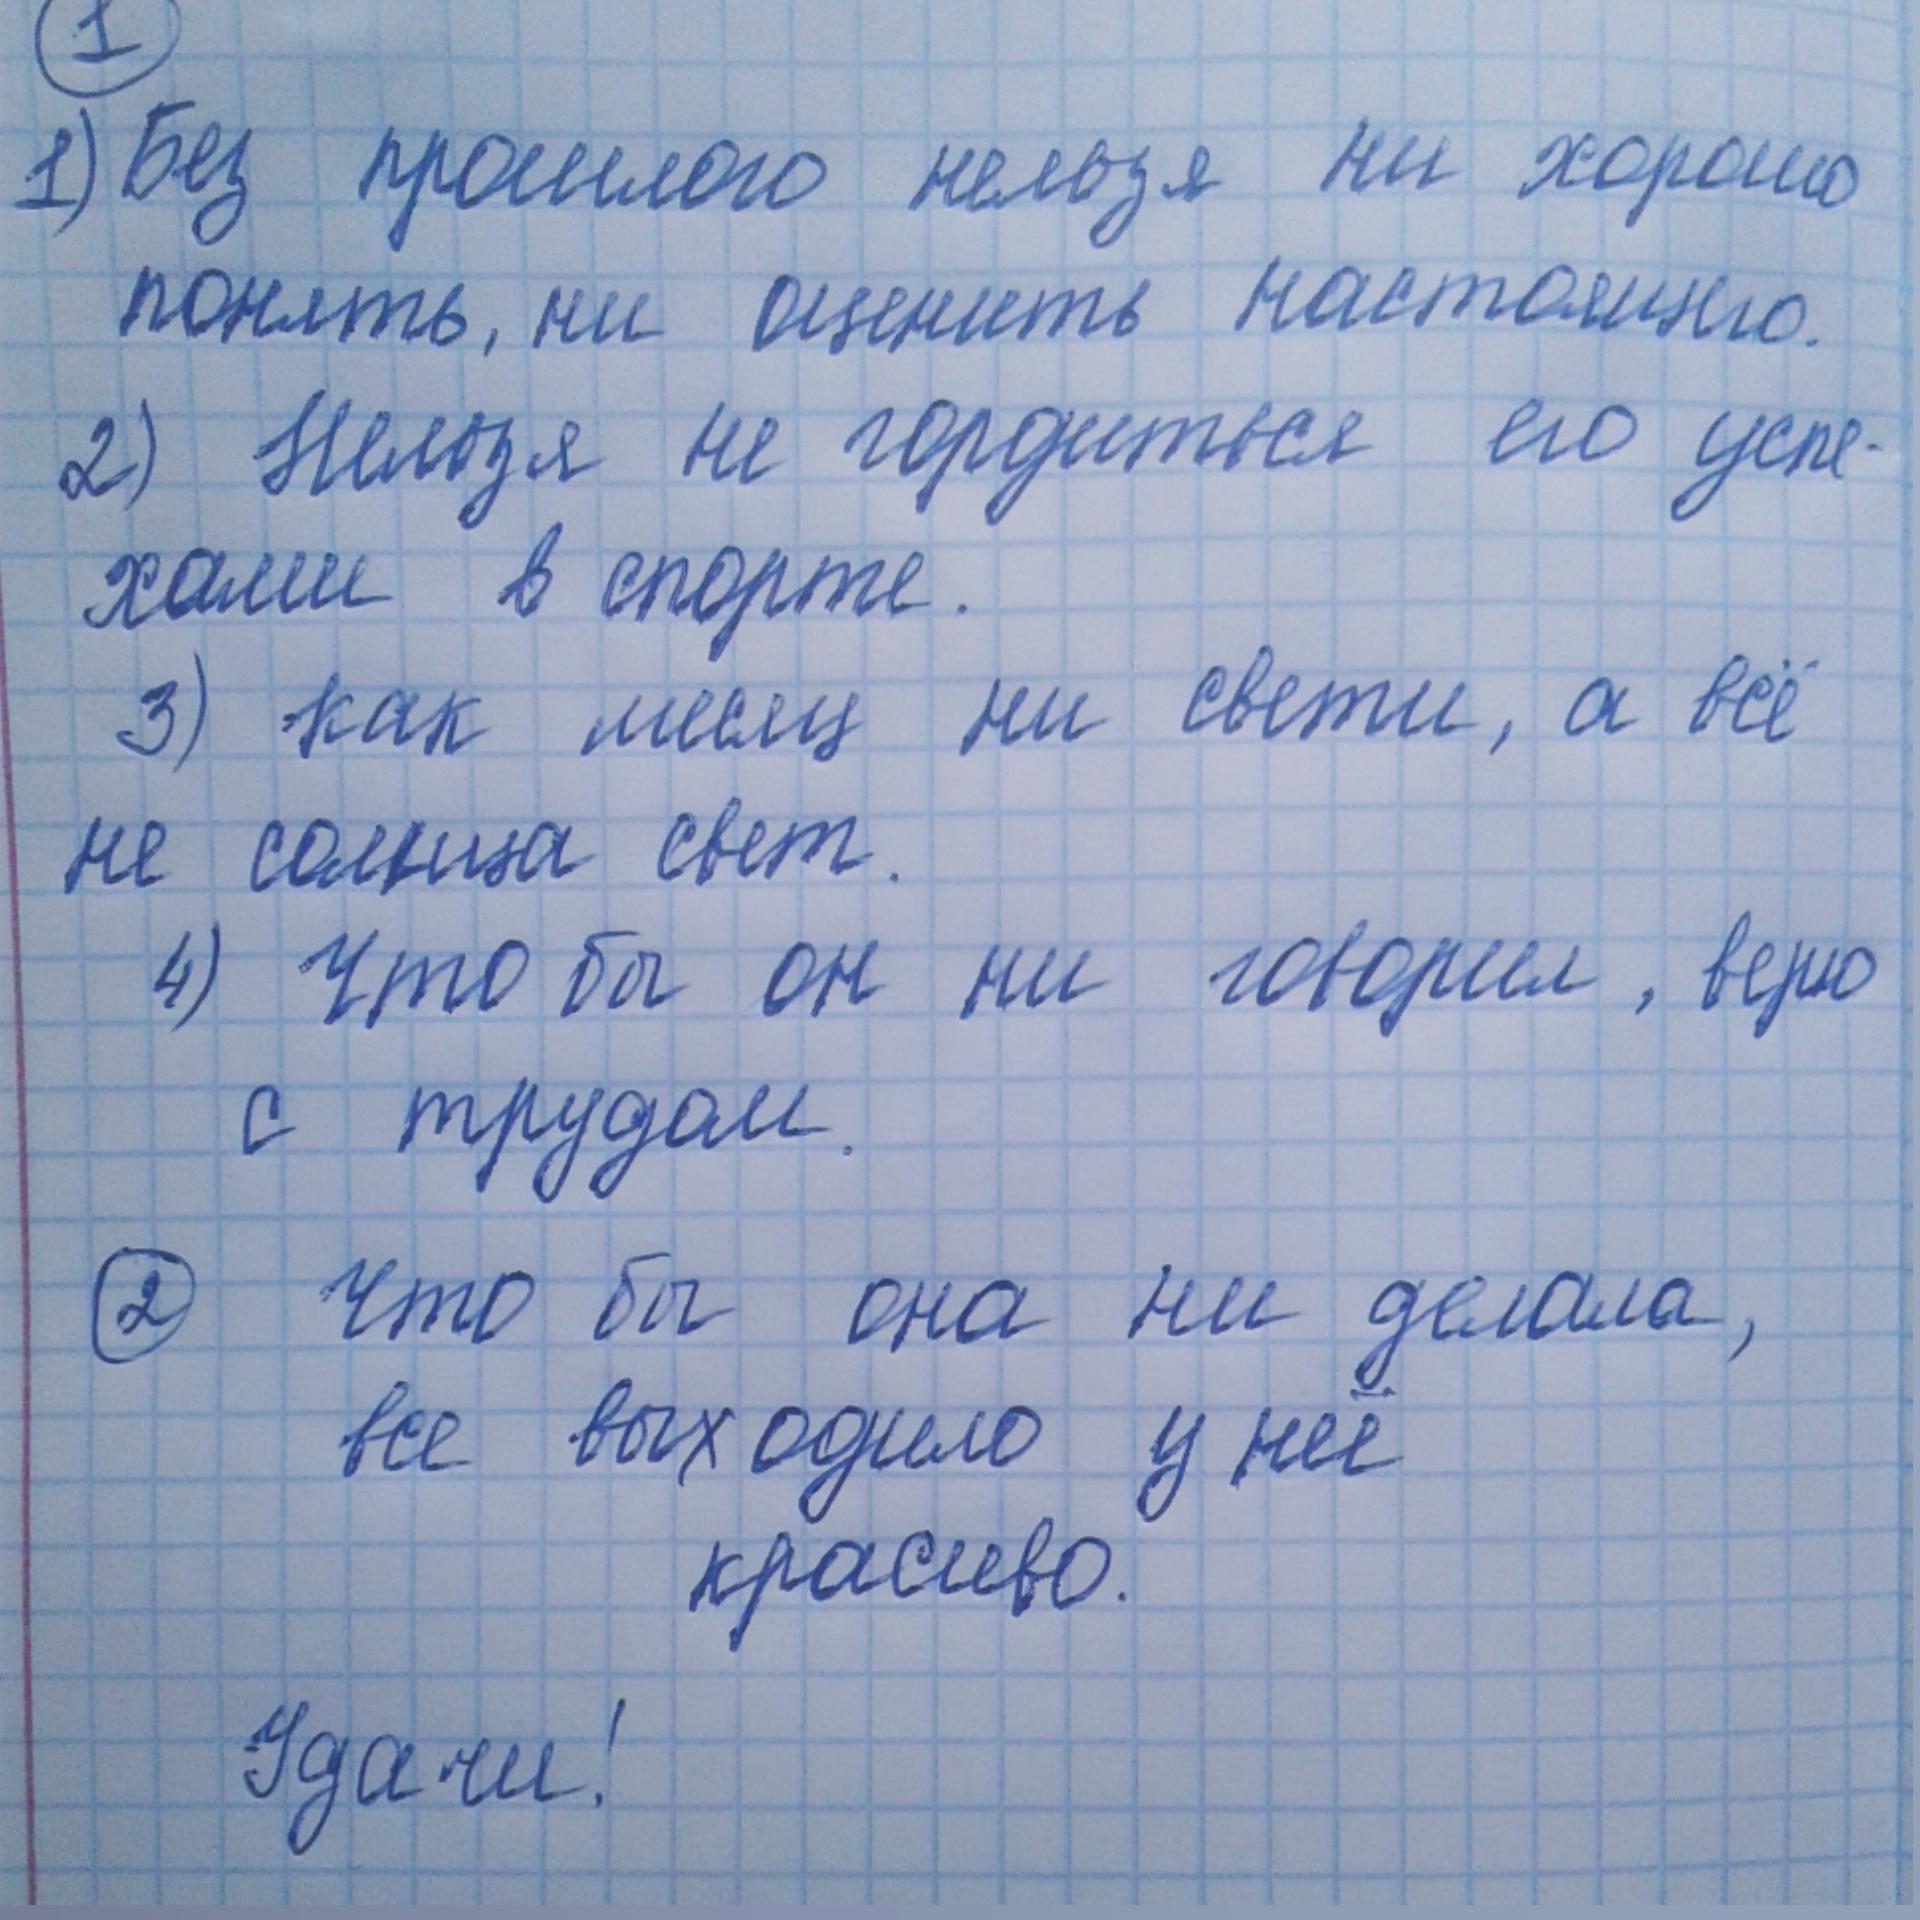 1
1) Без прошлого нельзя ни хорошо
понять, ни оценить настоящего.
2) Нельзя не гордиться его успе-
хами в спорте.
3) как месяц ни свети, а всё
не солнца свет.
4) Что бы он ни говорил, верю
с трудом.
2 Что бы она ни делала,
все выходило у неё
красиво.
Удачи!